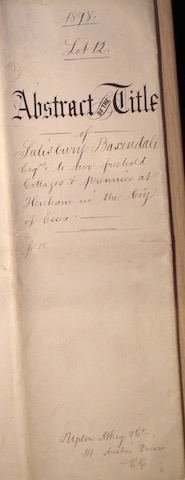 1898.
Lot 12.
Abstract of the Title
of
Salisbury Baxendale
Esqre. to two freehold
Cottages & premises at
Henham in the Coy
of Essex
Upton Atkey & Co.
14 Austin Friars
E.C.